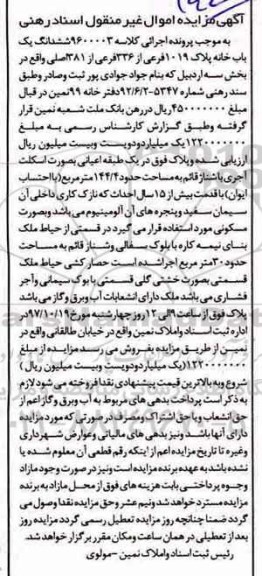 آگهی مزایده اموال غیر منقول اسناد رهنی
به موجب پرونده اجرائی کلاسه ۹۶۰۰۰۰۳ ششدانگ یک
باب خانه پلاک ۱۰۱۹ فرعی از ۳۳۶ فرعی از ۳۸۱ اصلی واقع در
بخش سه اردبیل که بنام جواد جوادی پور ثبت و صادر وطبق
سند رهنی شماره ۵۳۴۷-۹۲/۶/۲ دفتر خانه ۹۹ نمین در قبال
مبلغ ۴۵۰۰۰۰۰۰۰ ریال در رهن بانک ملت شعبه نمین قرار
گرفته وطبق گزارش کارشناس رسمی به مبلغ
۱۲۲۰۰۰۰۰۰۰ یک میلیارد و دویست و بیست میلیون ریال
ارزیابی شده و پلاک فوق در یک طبقه اعیانی بصورت اسکلت
آجری باشناژ قائم به مساحت حدود ۱۴۴/۴ متر مربع (با احتساب
ایوان) با قدمت بیش از ۱۵ سال احداث که نازک کاری داخلی آن
سیمان سفید و پنجره های آن آلومینیوم می باشد و بصورت
مسکونی مورد استفاده قرار می گیرد در قسمتی از حیاط ملک
بنای نیمه کاره با بلوک سفالی وشناژ قائم به مساحت
حدود ۳۰ متر مربع اجرا شده است حصار کشی حیاط ملک
قسمتی بصورت خشتی گلی قسمتی با بوک سیمانی وآجر
فشاری می باشد ملک دارای انشعابات آب وبرق وگاز می باشد
پلاک فوق از ساعت ۹ الی ۱۲ روز چهارشنبه مورخ ۹۷/۱۰/۱۹ در
اداره ثبت اسناد واملاک نمین واقع در خیابان طالقانی واقع در
نمین از طریق مزایده بفروش می رسد مزایده از مبلغ
۱۲۲۰۰۰۰۰۰۰ (یک میلیارد و دویست و بیست میلیون ریال)
شروع وبه بالاترین قیمت پیشنهادی نقدا فروخته می شود لازم
به ذکر است پرداخت بدهی های مربوط به آب وبرق وگاز اعم از
حق انشعاب ویا حق اشتراک ومصرف در صورتی که مورد مزایده
دارای آنها باشد ونیز بدهی های مالیاتی وعوارض شهرداری
وغیره تا تاریخ مزایده اعم از اینکه رقم قطعی آن معلوم شده یا
نشده باشد به عهده برنده مزایده است ونیز در صورت وجود مازاد
وجوه پرداختی بابت هزینه های فوق از محل مازاد به برنده
مزایده مسترد خواهد شد ونیم عشر وحق مزایده نقدا وصول می
گردد ضمنا چنانچه روز مزایده تعطیل رسمی گردد مزایده روز
بعد از تعطیلی در همان ساعت ومکان مقرر برگزار خواهد شد.
رئیس ثبت اسناد واملاک نمین – مولوی